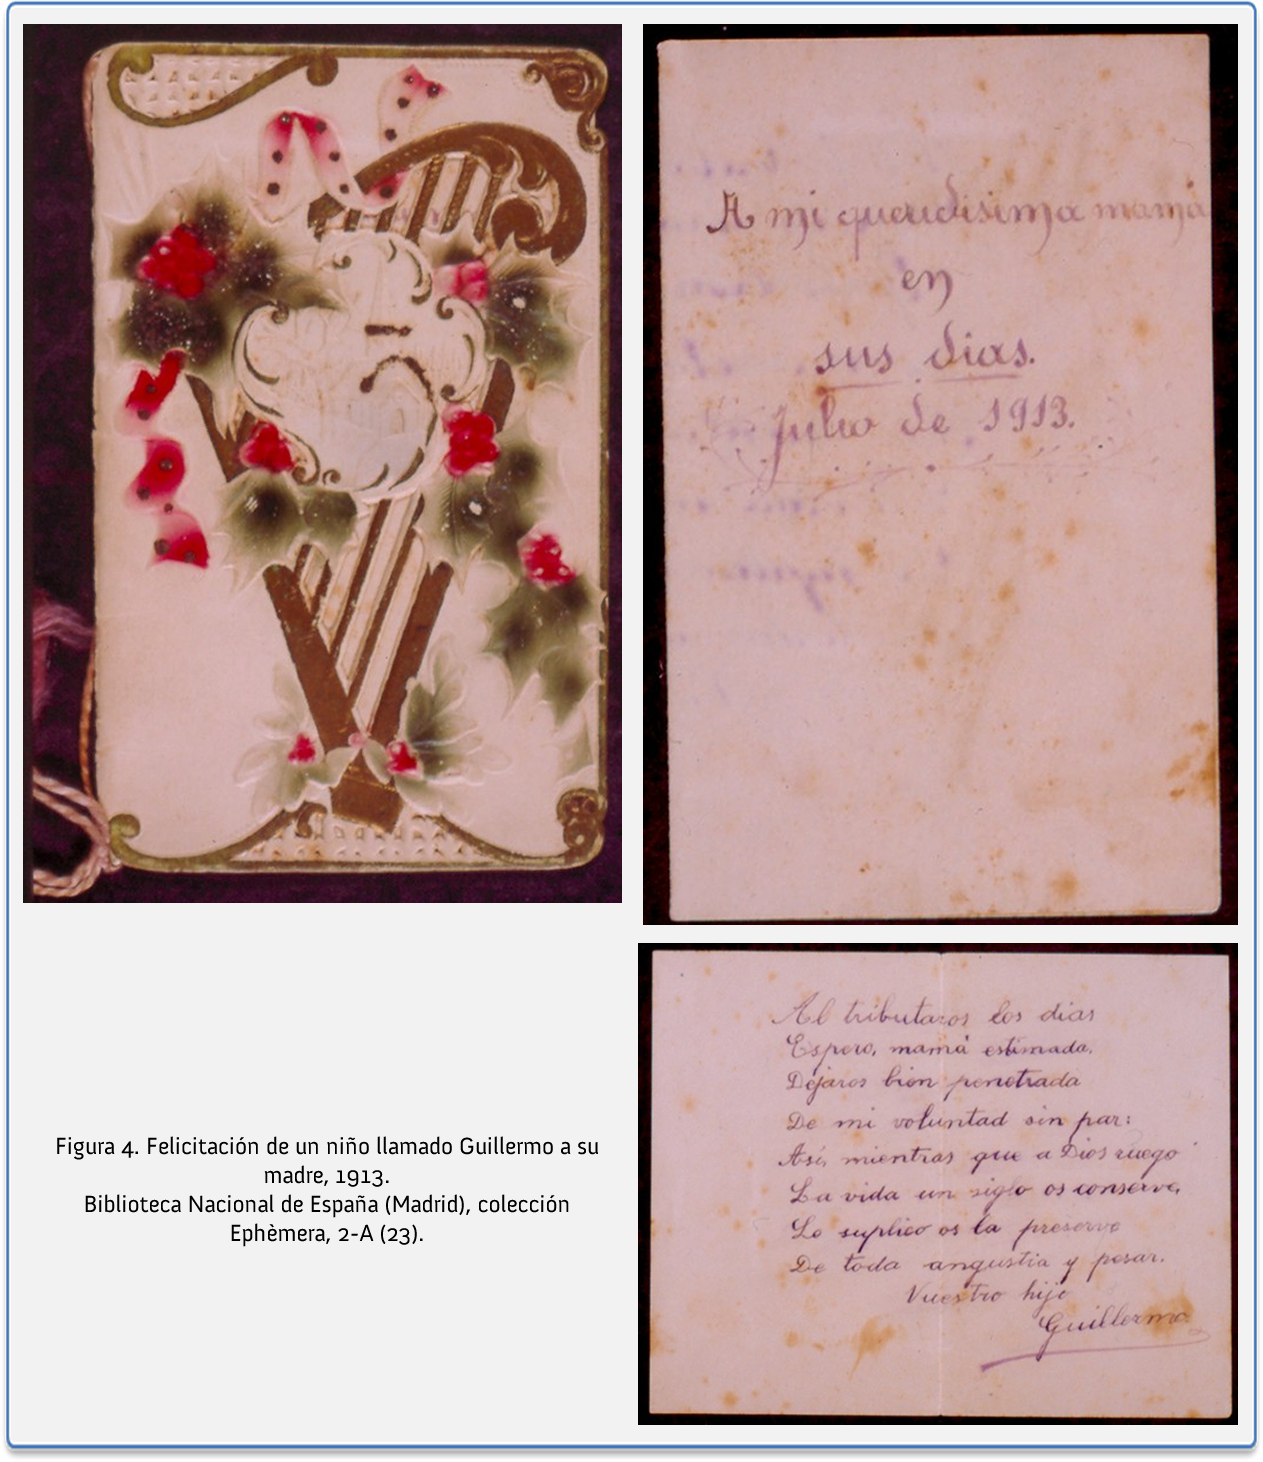 A mi queridisima mamá
en
sus dias.
Julio de 1913.
Al tributaros los dias
Espero, mamá estimada,
Dejaros bien penetrada
De mi voluntad sin par:
Así, mientras que a Dios ruego
La vida un siglo os conserve,
Le suplico os la preserve
De toda angustia y pesar.
Vuestro hijo
Guillermo
Figura 4. Felicitación de un niño llamado Guillermo a su
madre, 1913.
Biblioteca Nacional de España (Madrid), colección
Ephèmera, 2-A (23).